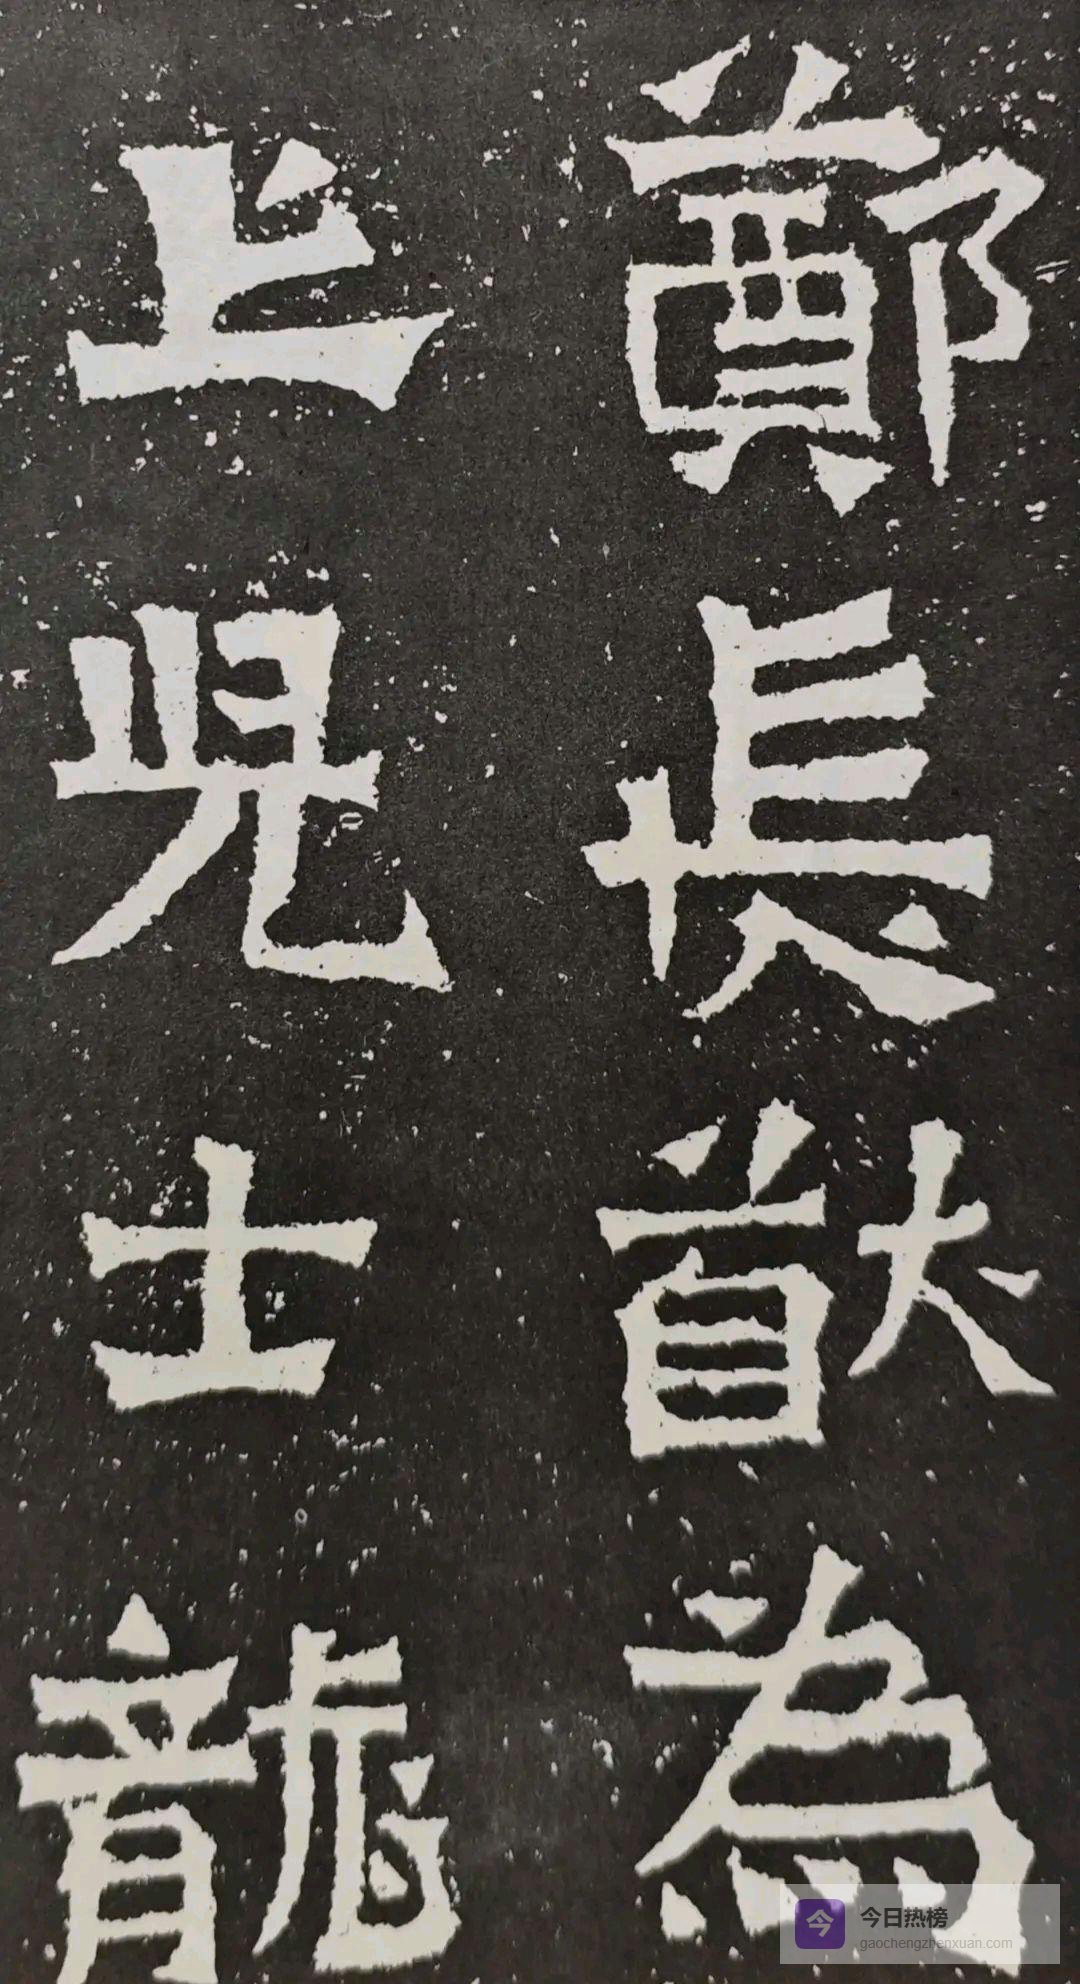 鄭長猷為
亡兒士龍
今 今日热榜
gaochengzhenxuan.com